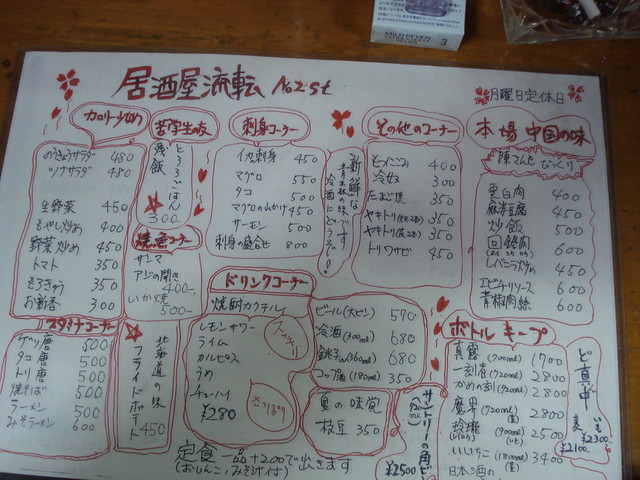 居酒屋 流転 No2 st
月曜日定休日
カロリー少なめ
のりきゅうサラダー 480
ツナサラダー 480
生野菜 450
もやし炒め 400
野菜炒め 450
トマト 350
もろきゅう 350
お新香 300
苦学生の友
とろろごはん
残飯
300
焼魚コーナー
サンマ
アジの開き
400-
いか焼
500-
刺身コーナー
イカ刺身 450
マグロ 550
タコ 500
マグロの山かけ 450
サーモン 500
刺身の盛合せ 800
新鮮な
青森の味です
冷酒にどうぞ
その他のコーナー
もつにこみ 400
冷奴 300
たまご焼 350
ヤキトリ 350
ヤキトリ 350
トリワサビ 450
本場 中国の味
陳さんもびっくり
雲白肉 400
麻婆豆腐 450
炒飯 500
回鍋肉 600
レバニラ炒め 450
エビチリソース 600
青椒肉絲 600
スタミナコーナー
ゲソ唐 500
タコ唐 500
トリ唐 500
焼そば 500
ラーメン 500
みそラーメン 600
北海道の味
フライドポテト
450
ドリンクコーナー
焼酎カクテル
レモンサワー
ライム
カルピス
うめ
チューハイ
¥280
スッキリ
さっぱり
ビール(大ビン) 570
冷酒(300ml) 680
銚子(360ml) 680
コップ酒(180ml) 350
夏の味覚
枝豆 350
定食 一品+200で出きます
(おしんこ、みそ汁付)
サントリーの角ビン
¥2500
ボトル キープ
真露 (900ml) 1700
一刻者 (720ml) 2800
かめの刻 (720ml) 2800
魔界 (920ml) 2800
(900ml) 2500
いいちこ (1800ml) 3400
日本酒の
ど真中
¥2300
¥2100